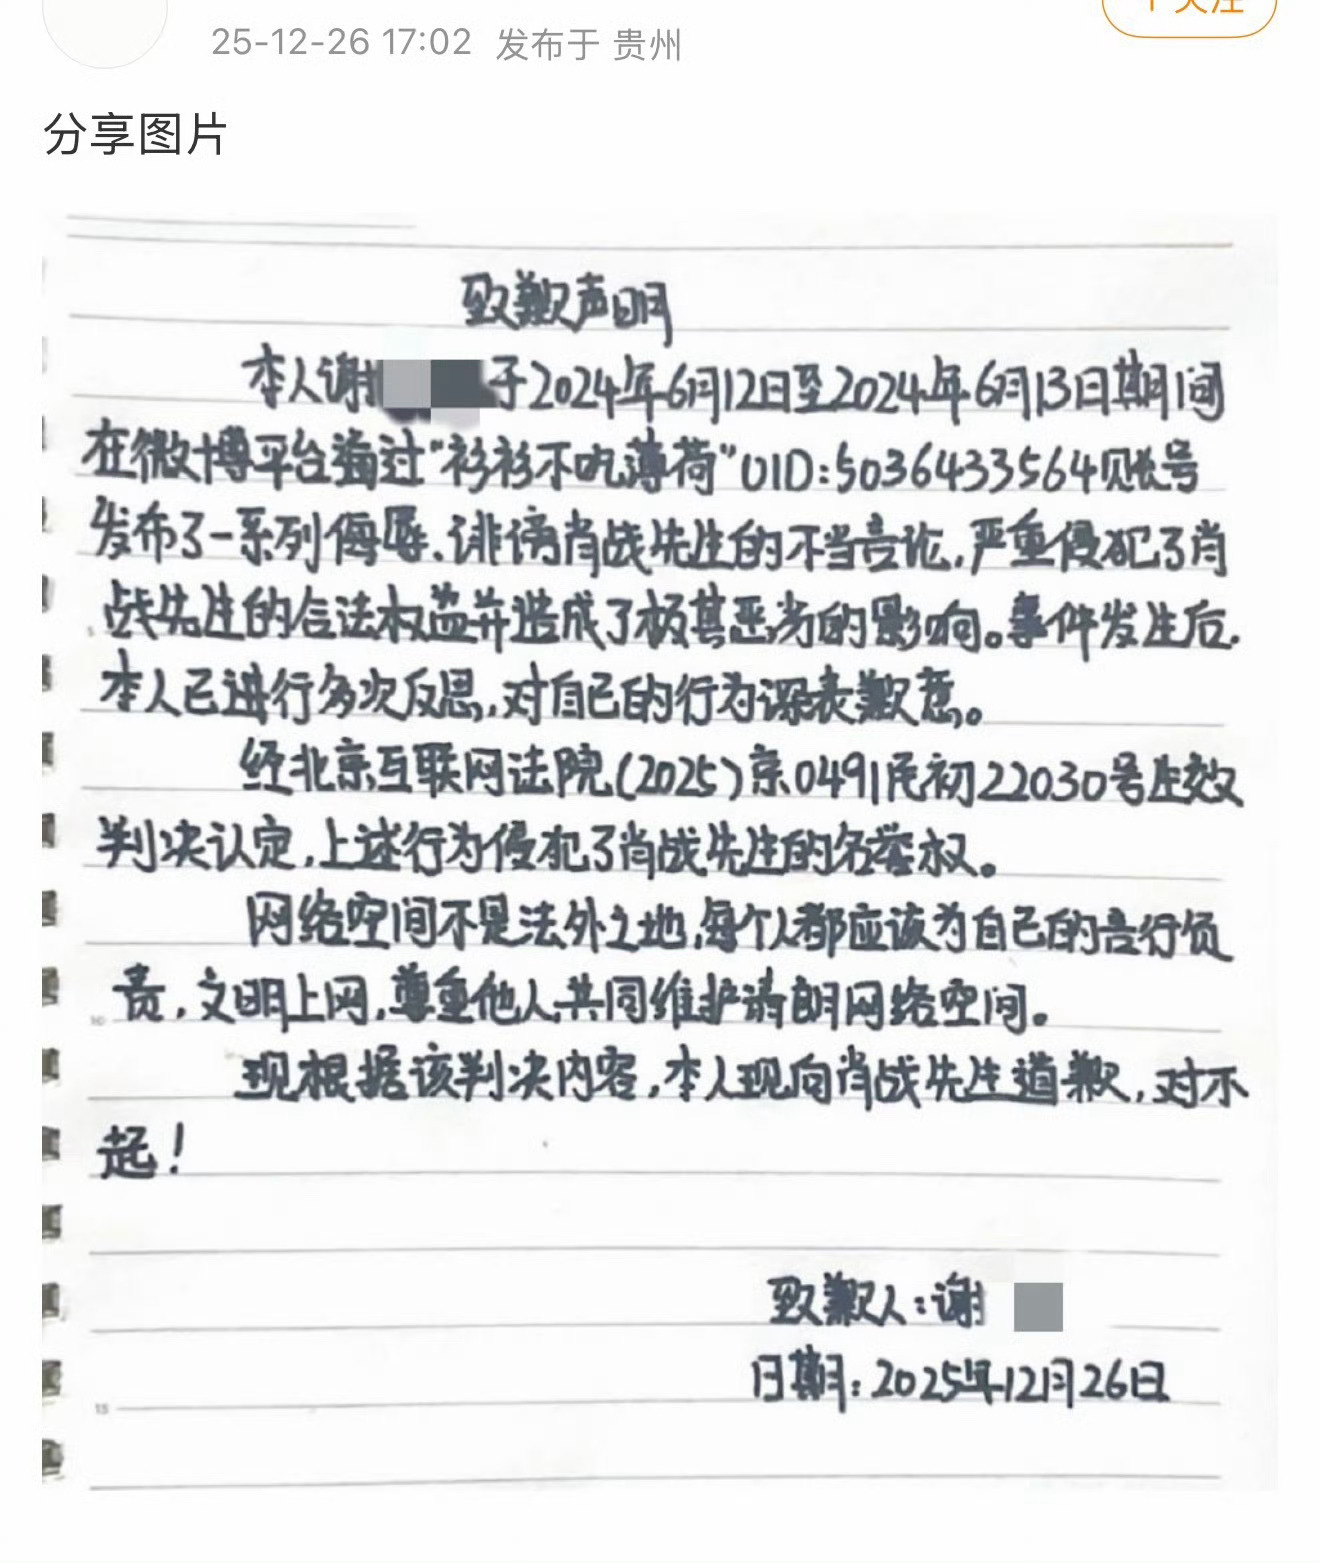 25-12-26 17:02 发布于 贵州
分享图片
致歉声明
本人谢 于2024年6月12日至2024年6月13日期间
在微博平台通过“衫衫不吃薄荷”UID:5036433564账号
发布了一系列侮辱、诽谤肖战先生的不当言论,严重侵犯了肖
战先生的合法权益并造成了极其恶劣的影响。事件发生后.
本人已进行多次反思,对自己的行为深表歉意。
经北京互联网法院(2025)京0491民初22030号生效
判决认定,上述行为侵犯了肖战先生的名誉权。
网络空间不是法外之地,每个人都应该为自己的言行负
责,文明上网,尊重他人,共同维护清朗网络空间。
现根据该判决内容,本人现向肖战先生道歉,对不
起!
10
致歉人:谢
日期:2025年12月26日
15